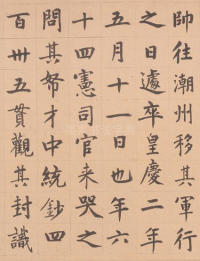 帥往潮州移其軍行
之日遽卒皇慶二年
五月十一日也年六
十四憲司官来哭之
問其帑才中統鈔四
百卅五貫觀其封識